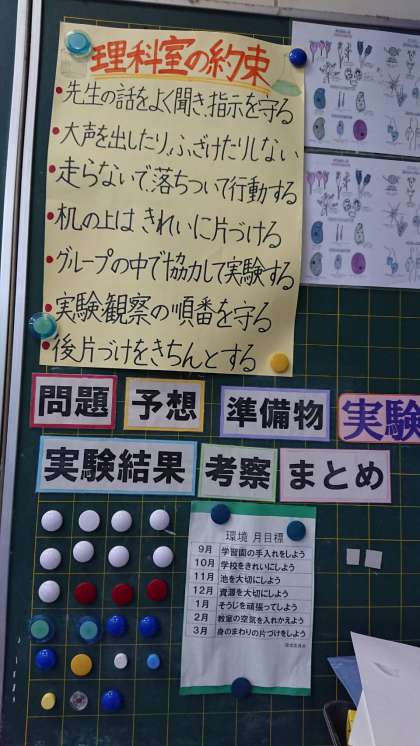 理科室の約束
・先生の話をよく聞き、指示を守る
・大声を出したり、ふざけたりしない
・走らないで、落ちついて行動する
・机の上は きれいに片づける
・グループの中で協力して実験する
・実験・観察の順番を守る
・後片づけをきちんとする
問題 予想 準備物 実験
実験結果 考察 まとめ
環境 月目標
9月 学習園の手入れをしよう
10月 学校をきれいにしよう
11月 池を大切にしよう
12月 資源を大切にしよう
1月 そうじを頑張ってしよう
2月 教室の空気を入れかえよう
3月 身のまわりの片づけをしよう